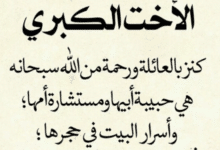 الأخت الكبري
كنز بالعائلة ورحمة من الله سبحانه
هي حبيبة أبيها ومستشارة أمها؛
وأسرار البيت في حجرها؛